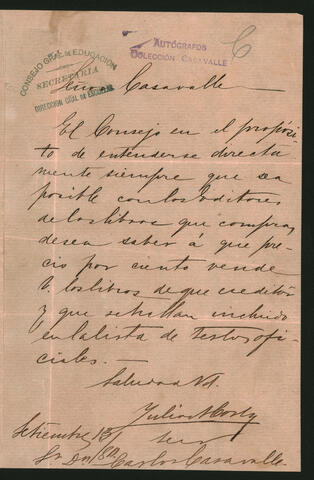 CONSEJO GRAL. DE EDUCACION
SECRETARIA
DIRECCION GRAL DE ESCUELAS
AUTÓGRAFOS
COLECCIÓN CASAVALLE
C
Casavalle
El Consejo en el propósi
to de entenderse directa
mente siempre que sea
posible con los editores
de los libros que compra,
desea saber á que pre-
cio por ciento vende
V. los libros de que es editor
y que se hallan incluido
en la lista de textos ofi-
ciales.
Saluda a Vd.
Julio
Setiembre 13/
Sr Dn Carlos Casavalle